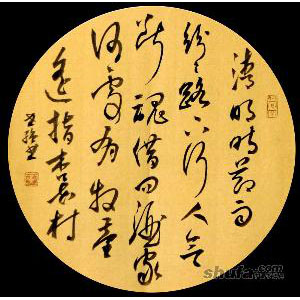 清明时节雨
纷纷路上行人欲
断魂借问酒家
何处有牧童
遥指杏花村
shufa.com